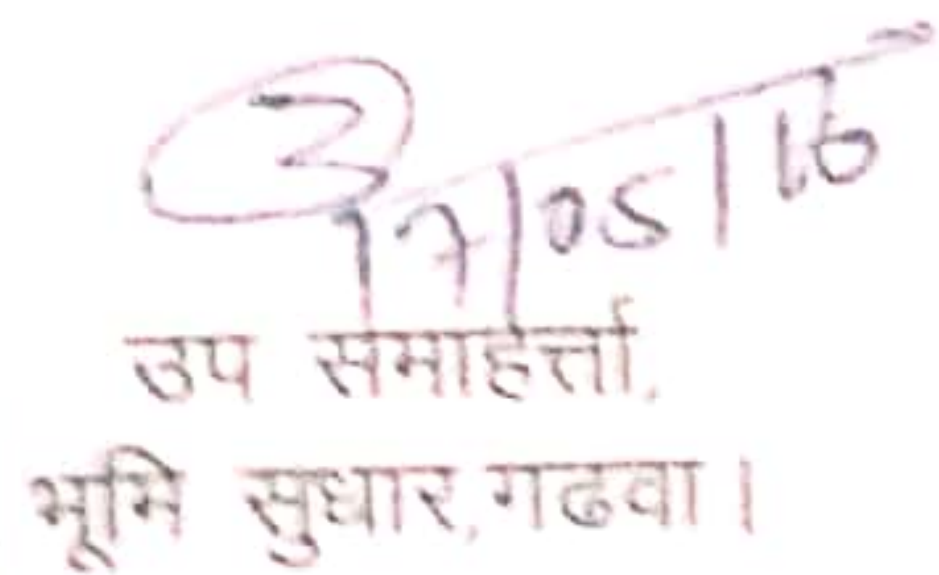 17/05/16
उप समाहर्त्ता,
भूमि सुधार, गढवा।